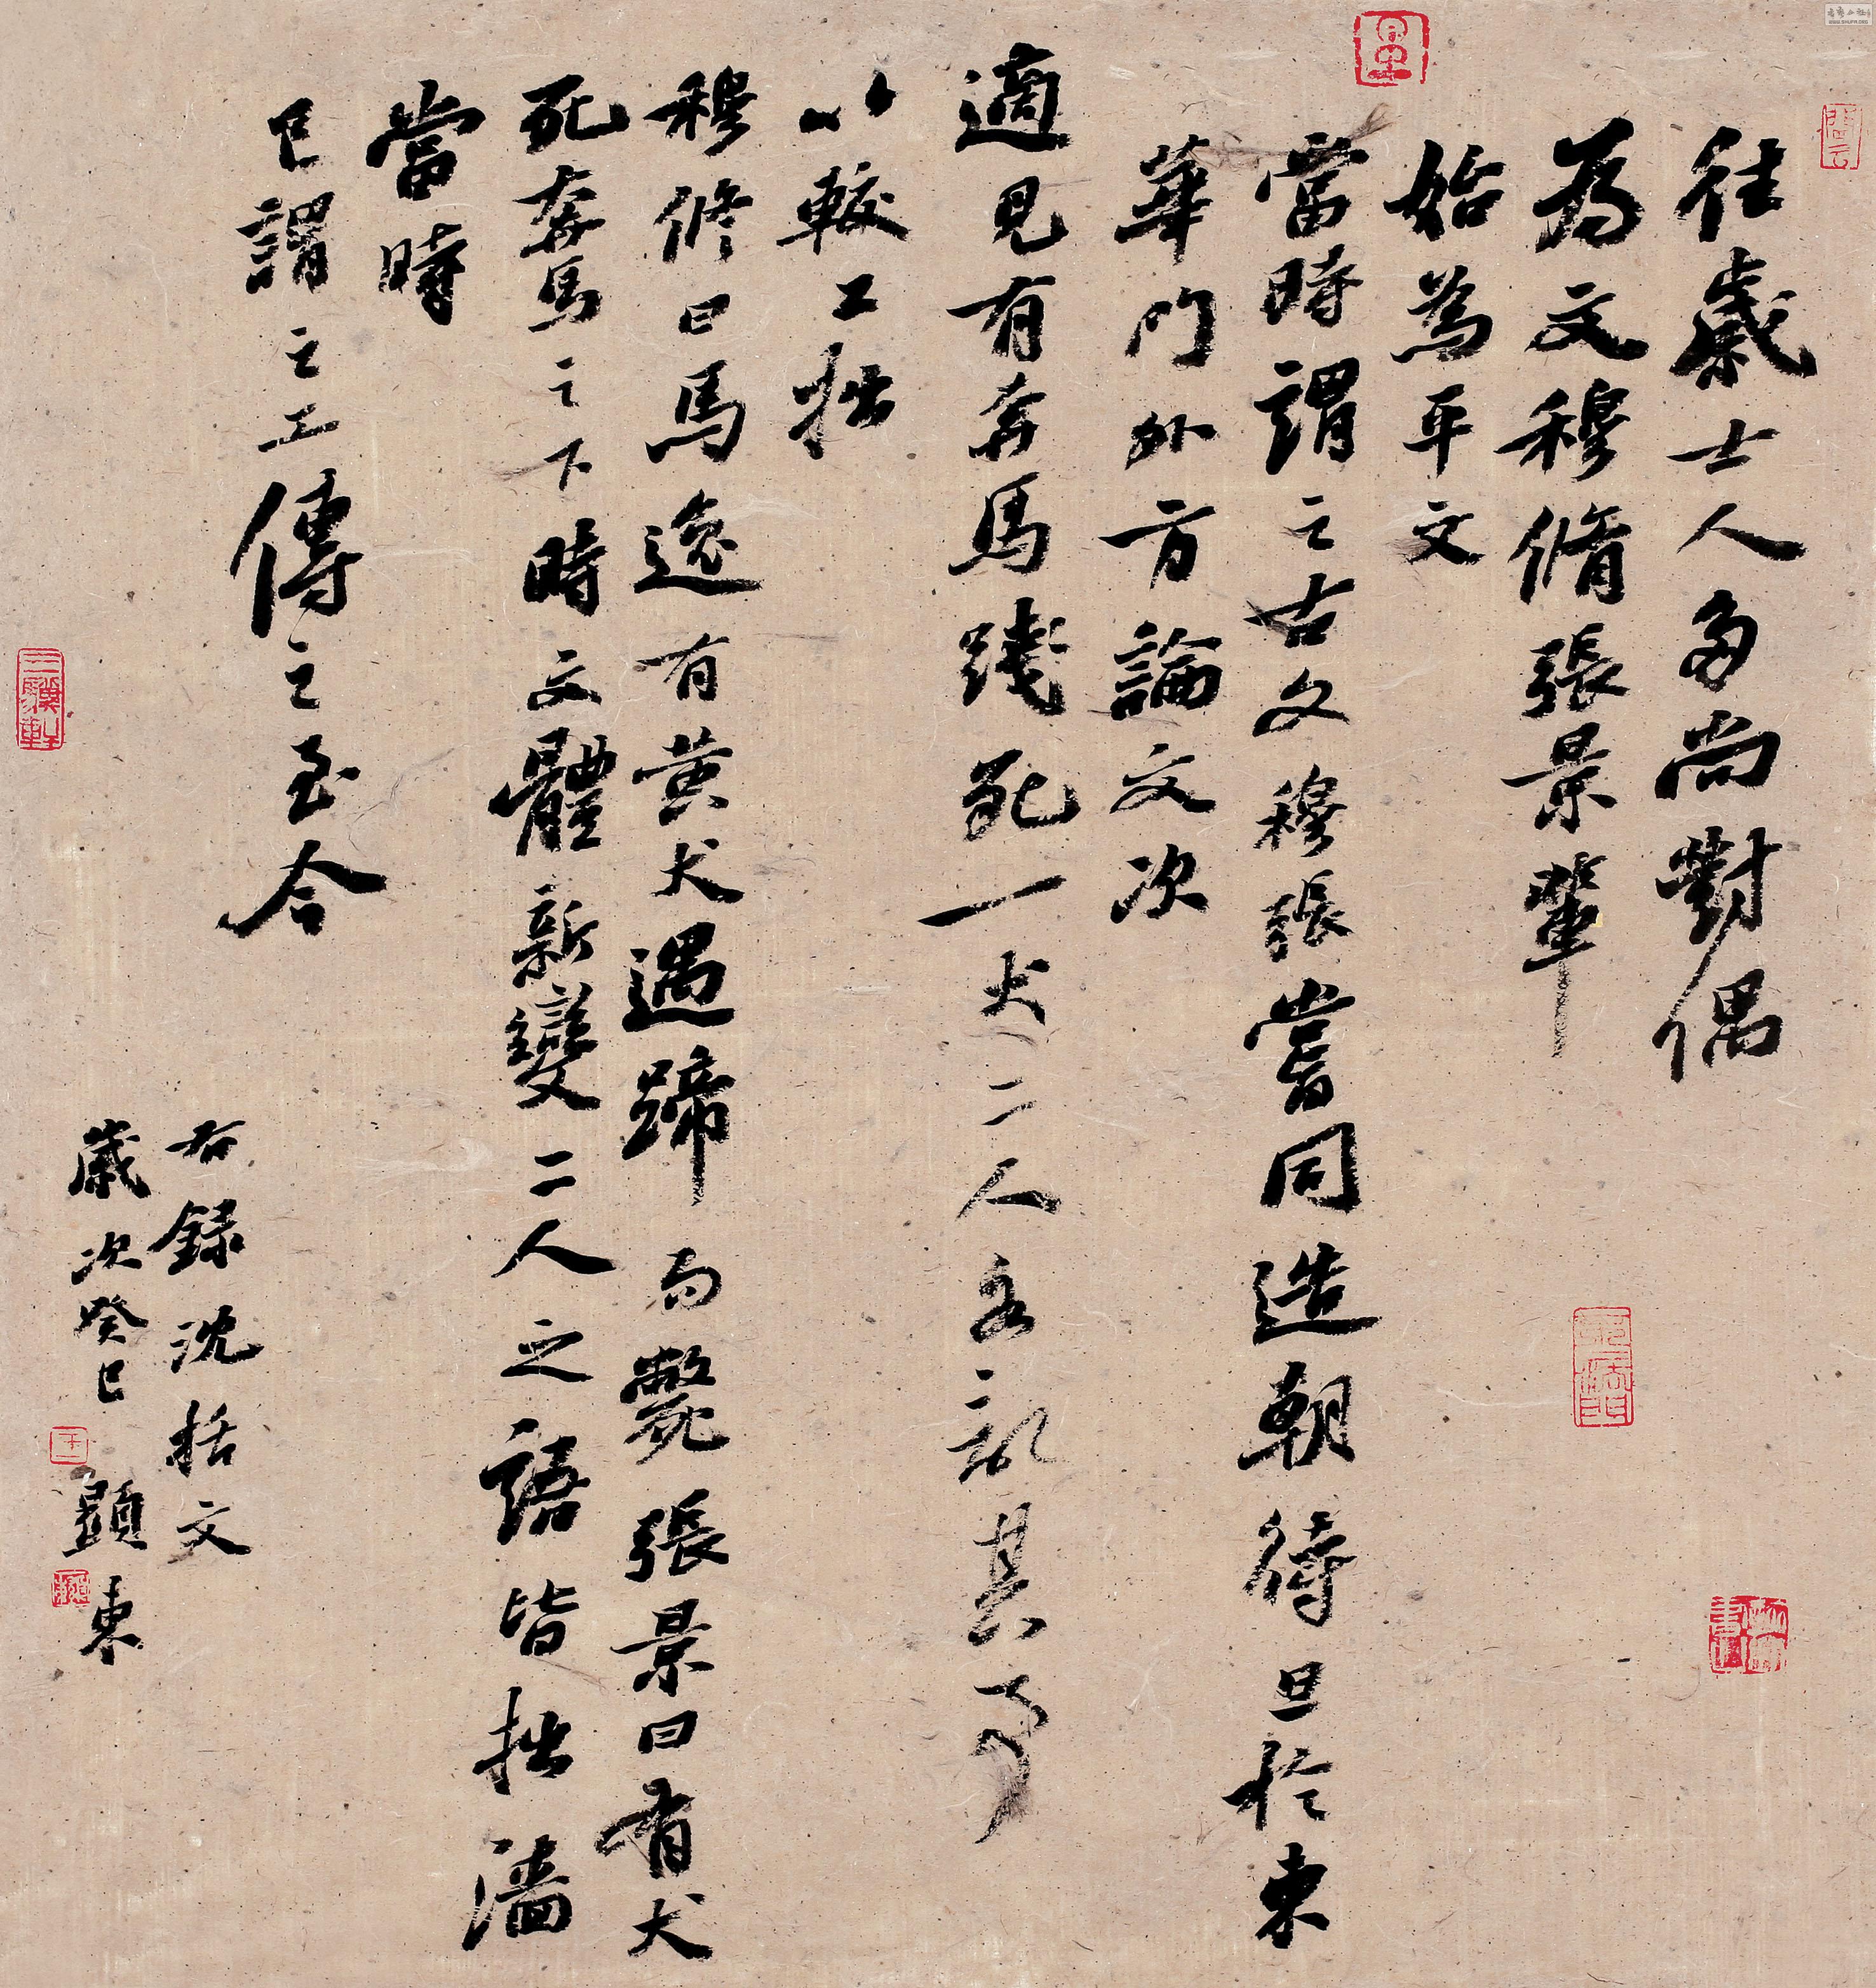 往歲士人多尚對偶
為文穆脩張景輩
始為平文
當時謂之古文穆張嘗同造朝待旦於東
華門外方論文次
適見有奔馬踐死一犬二人各記其事
以較工拙
穆修曰馬逸有黃犬遇蹄而斃張景曰有犬
死奔馬之下時文體新變二人之語皆拙澁
當時
已謂之工傳之至今
右録沈括文
歲次癸巳 顕東